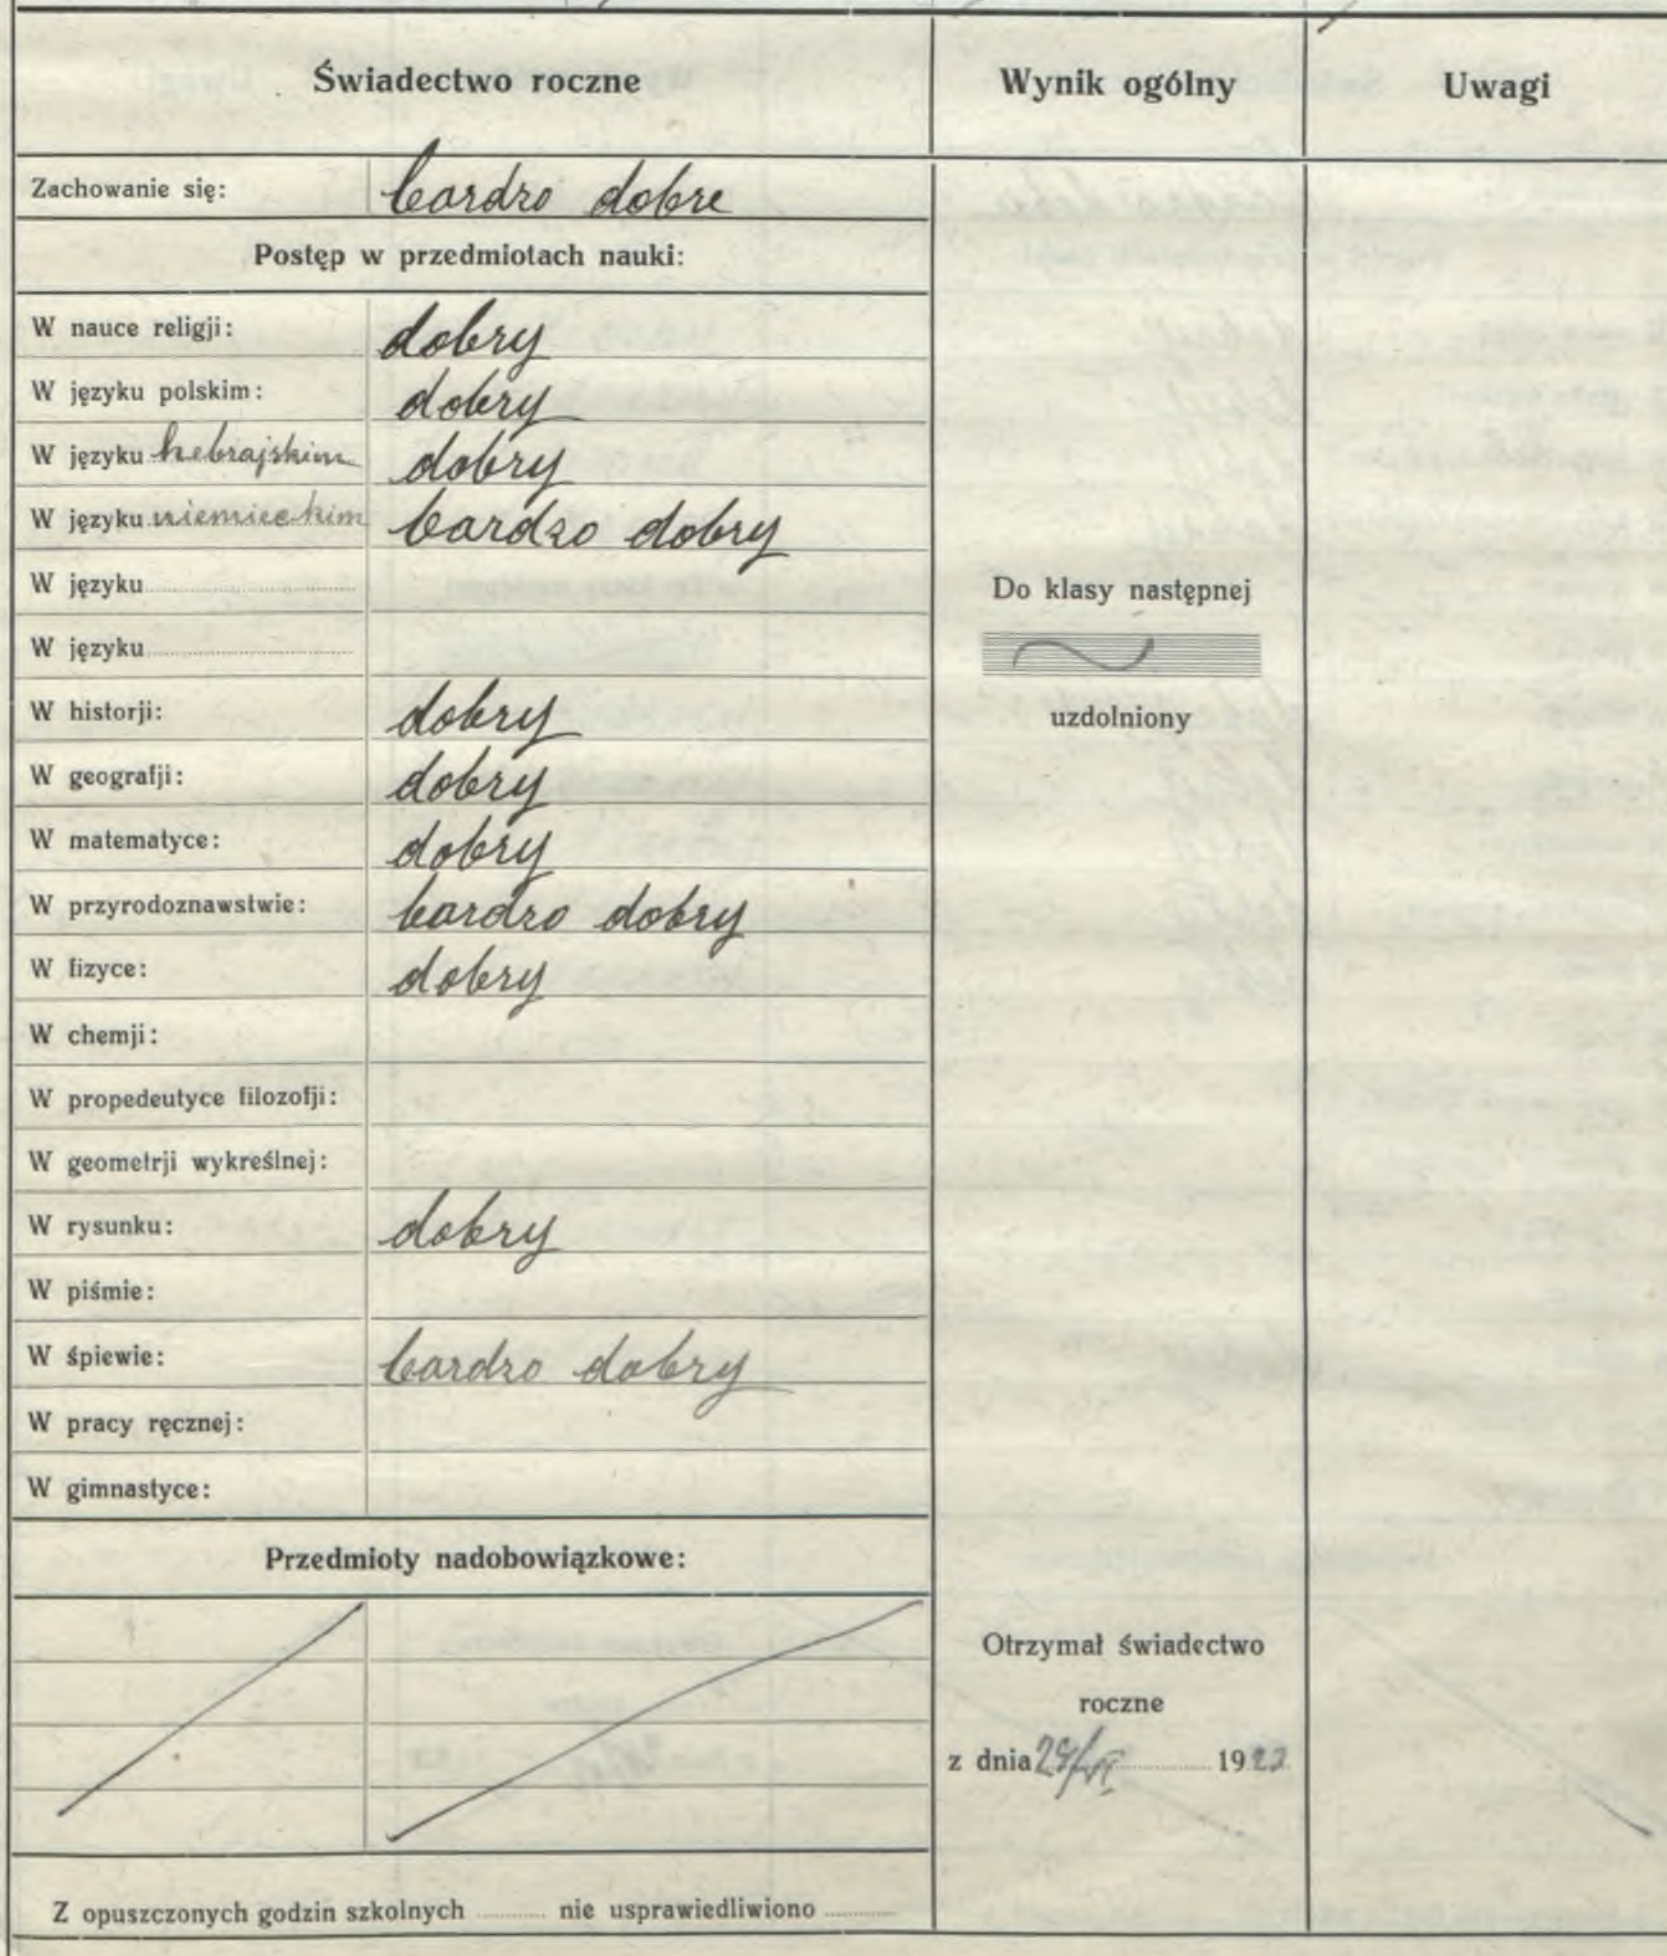 Świadectwo roczne
Wynik ogólny
Uwagi
Zachowanie się: bardzo dobre
Postęp w przedmiotach nauki:
W nauce religji: dobry
W języku polskim: dobry
W języku hebrajskim dobry
W języku niemieckim bardzo dobry
W języku
W języku
W historji: dobry
W geografji: dobry
W matematyce: dobry
W przyrodoznawstwie: bardzo dobry
W fizyce: dobry
W chemji:
W propedeutyce filozofji:
W geometrji wykreślnej:
W rysunku: dobry
W piśmie:
W śpiewie: bardzo dobry
W pracy ręcznej:
W gimnastyce:
Przedmioty nadobowiązkowe:
Z opuszczonych godzin szkolnych nie usprawiedliwiono
Do klasy następnej
uzdolniony
Otrzymał świadectwo
roczne
z dnia 19